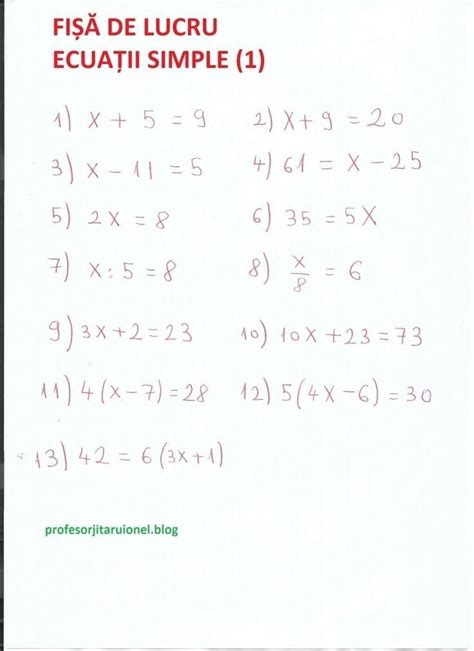 FIȘĂ DE LUCRU
ECUAȚII SIMPLE (1)
1) x + 5 = 9 2) x + 9 = 20
3) x - 11 = 5 4) 61 = x - 25
5) 2x = 8 6) 35 = 5x
7) x : 5 = 8 8) x/8 = 6
9) 3x + 2 = 23 10) 10x + 23 = 73
11) 4 (x - 7) = 28 12) 5 (4x - 6) = 30
13) 42 = 6 (3x + 1)
profesorjitaruionel.blog